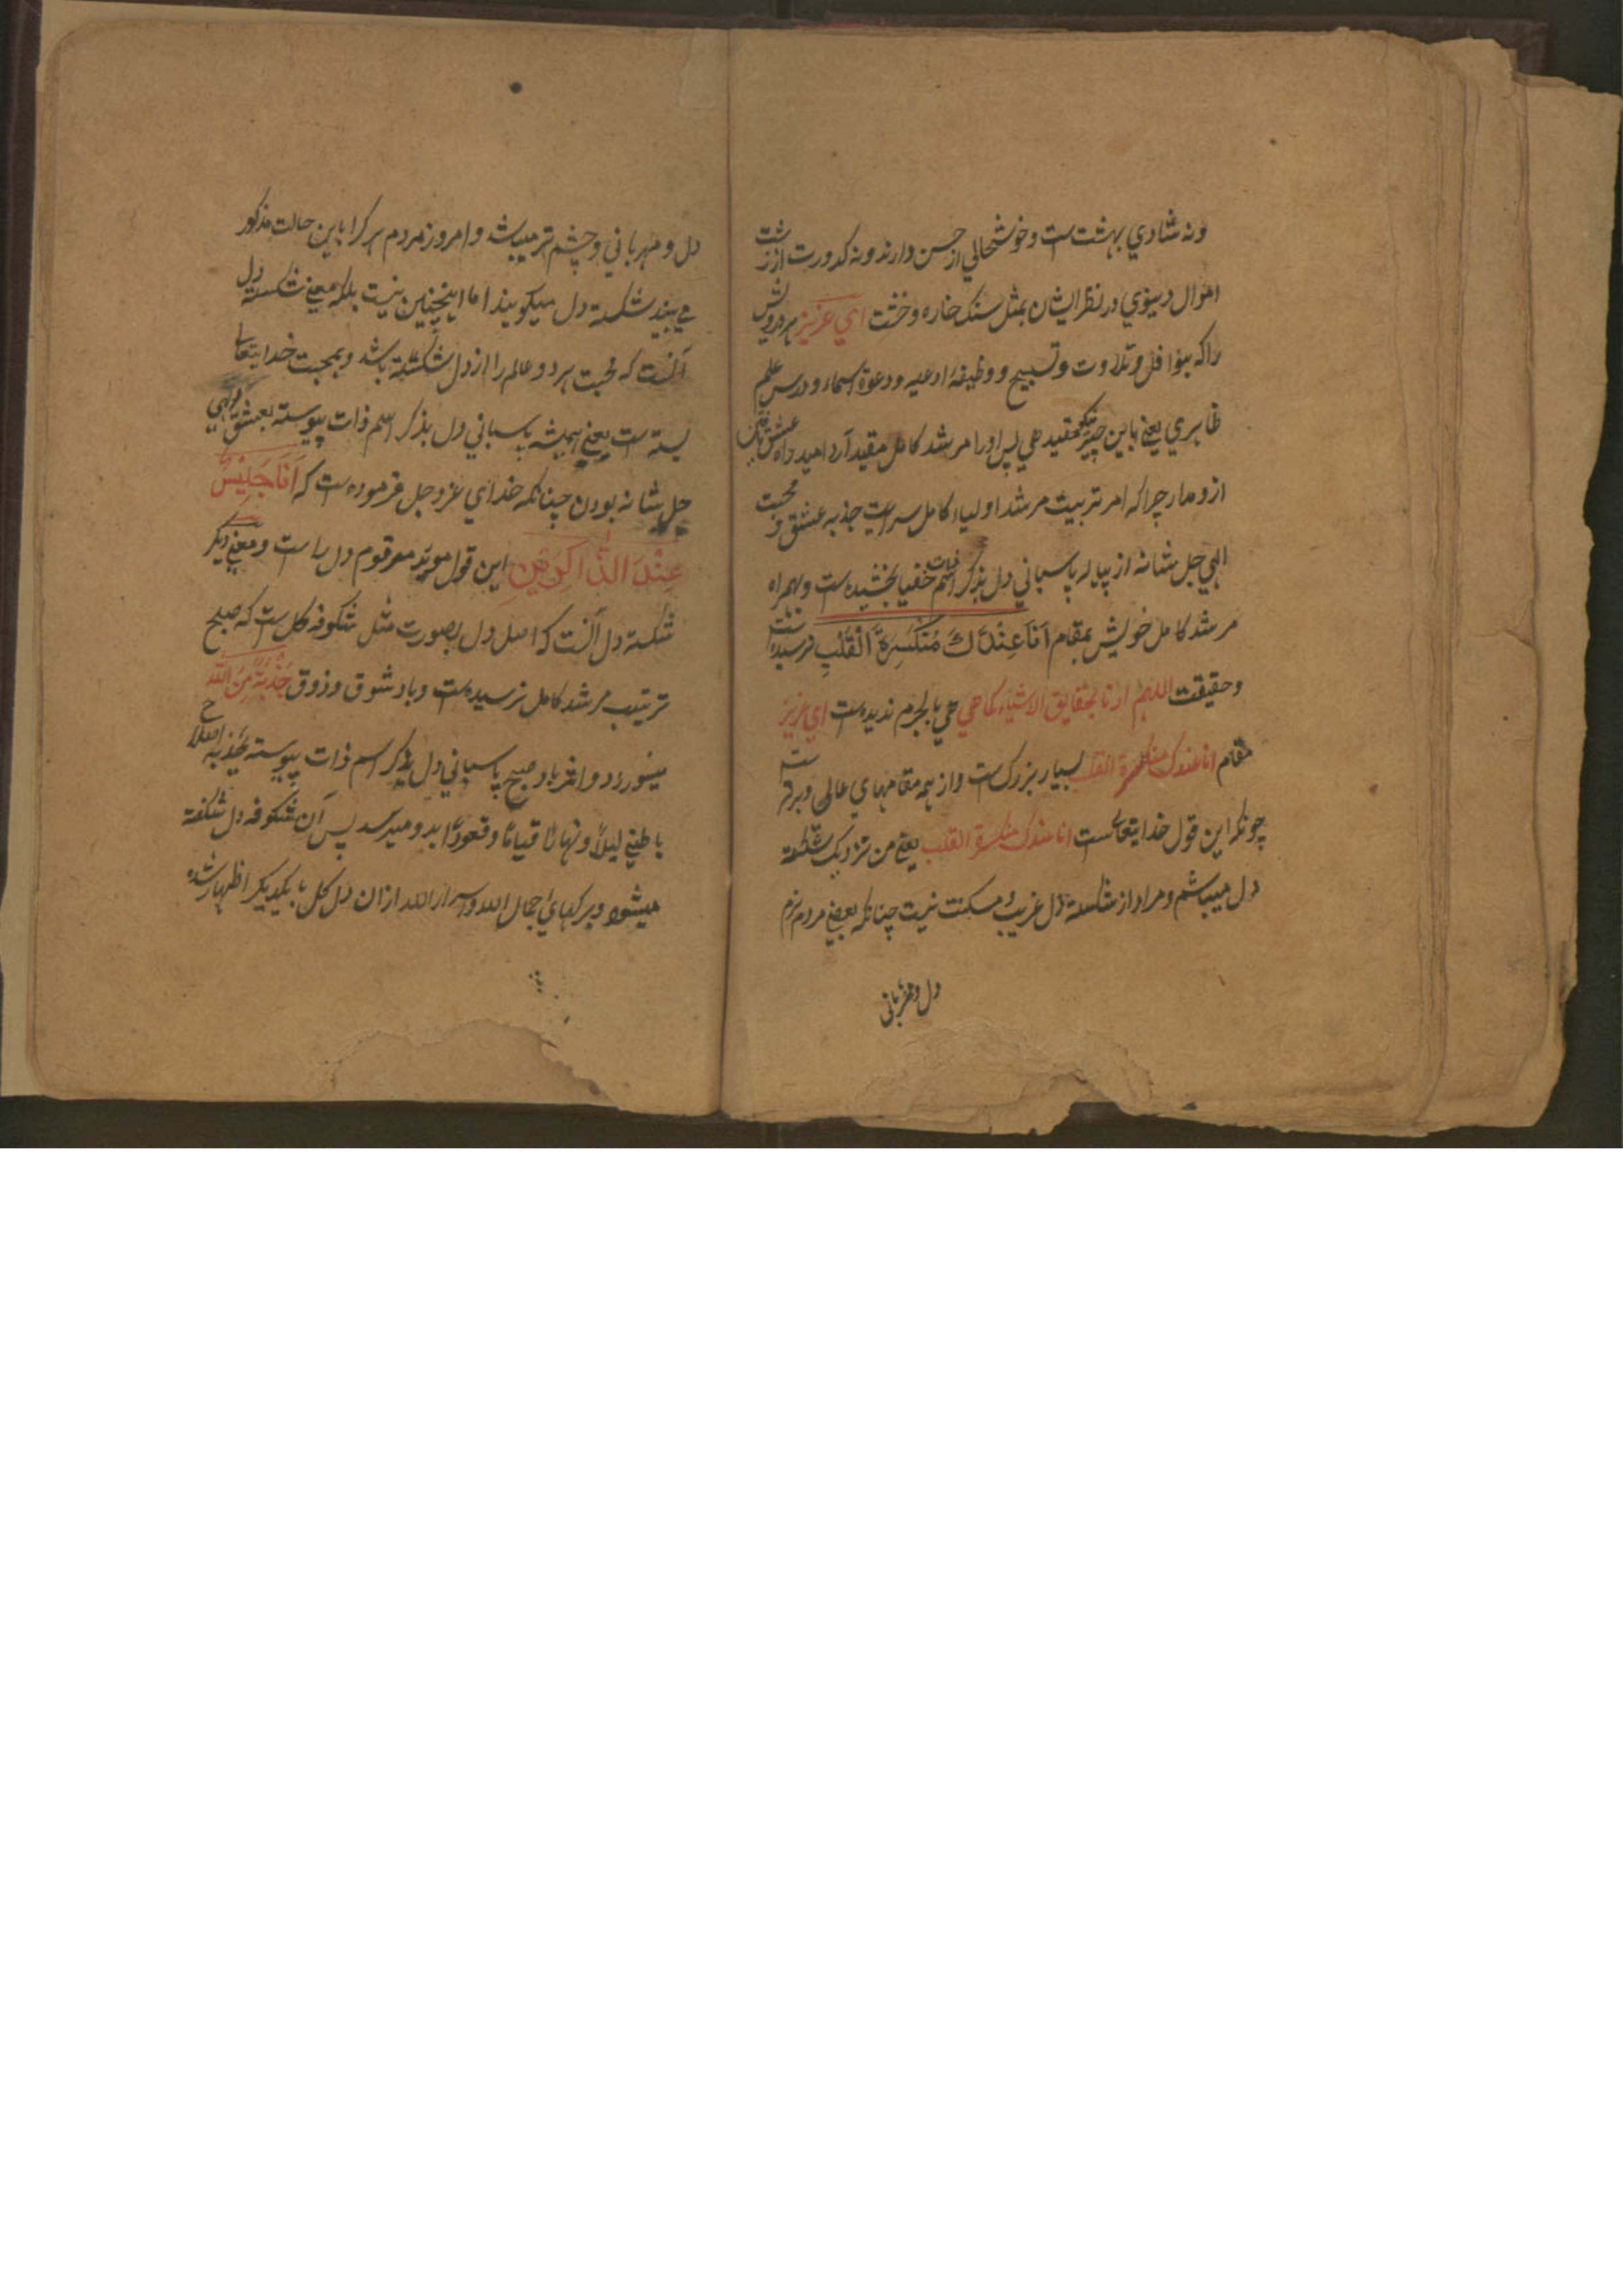 ونه شادي بهشت ست و خوشحالي از حسن دارند ونه كدورت از زشت
اموال دنيوي در نظر ايشان بمثل سنك خاره وخشت اي عزيز هر درويش
را كه بنوافل وتلاوت وتسبيح ووظيفهٔ ادعيه ودعوة اسماء ودرس علم
ظاهري يعني باين چيز مقيد پس اورا مرشد كامل مقيد آرد اميد راه عشق
ازو مدار چرا كه امر تربيت مرشد اولياء كامل سراست جذبه عشق و محبت
الهي جل شانه از پياله پاسباني دل بذكر اسم ذات خفيا بخشيده ست و بهمراه
مرشد كامل خويش بمقام اَنَا عِنْدَكَ مُنْكَسِرَةُ الْقَلْبِ نرسيده است
وحقيقت اللهم ارنا بحقايق الاشياء كما هي بالجرم نديده ست اي عزيز
مقام انا عندك منكسرة القلب بسيار بزرك ست واز همه مقامهاي عالي وبرتر ست
چونكه اين قول خدايتعالي ست انا عندك منكسرة القلب يعني من نزديك شكسته
دل ميباشم ومراد از شكسته دل غريب و مسكنت نيست چنانكه بعضي مردم نرم
دل ومهرباني
دل و مهرباني وچشم تر ميباشد وامروز مردم هر كرا باين حالت مذكور
مي بيند شكسته دل ميكويند اما اينچنين نيست بلكه معني شكسته دل
آنست كه محبت هر دو عالم را از دل شكسته باشد وبمحبت خدايتعالي
بسته ست يعني هميشه پاسباني دل بذكر اسم ذات پيوسته بعشق الهي
جل شانه بودن چنانكه خداي عزوجل فرموده ست كه اَنَا جَلِيْسٌ
عِنْدَ الذَّاكِرِيْنَ اين قول مويد مرقوم دل راست ومعني ديكر
شكسته دل آنست كه اصل دل بصورت مثل شكوفه كل ست كه صبح
ترتيب مرشد كامل نرسيده ست وباد شوق وذوق جَذْبَةٌ مِنَ اللّٰه
باد صبح پاسباني دل بذكر اسم ذات پيوسته بجذبه اصلاح
باطني ليلاً ونهارًا قيامًا وقعودًا بدو ميرسد پس آن شكوفه دل شكفته
ميشود وبركهاي جمال الله واسرار الله ازان دل كل بايكديكر اظهار شده